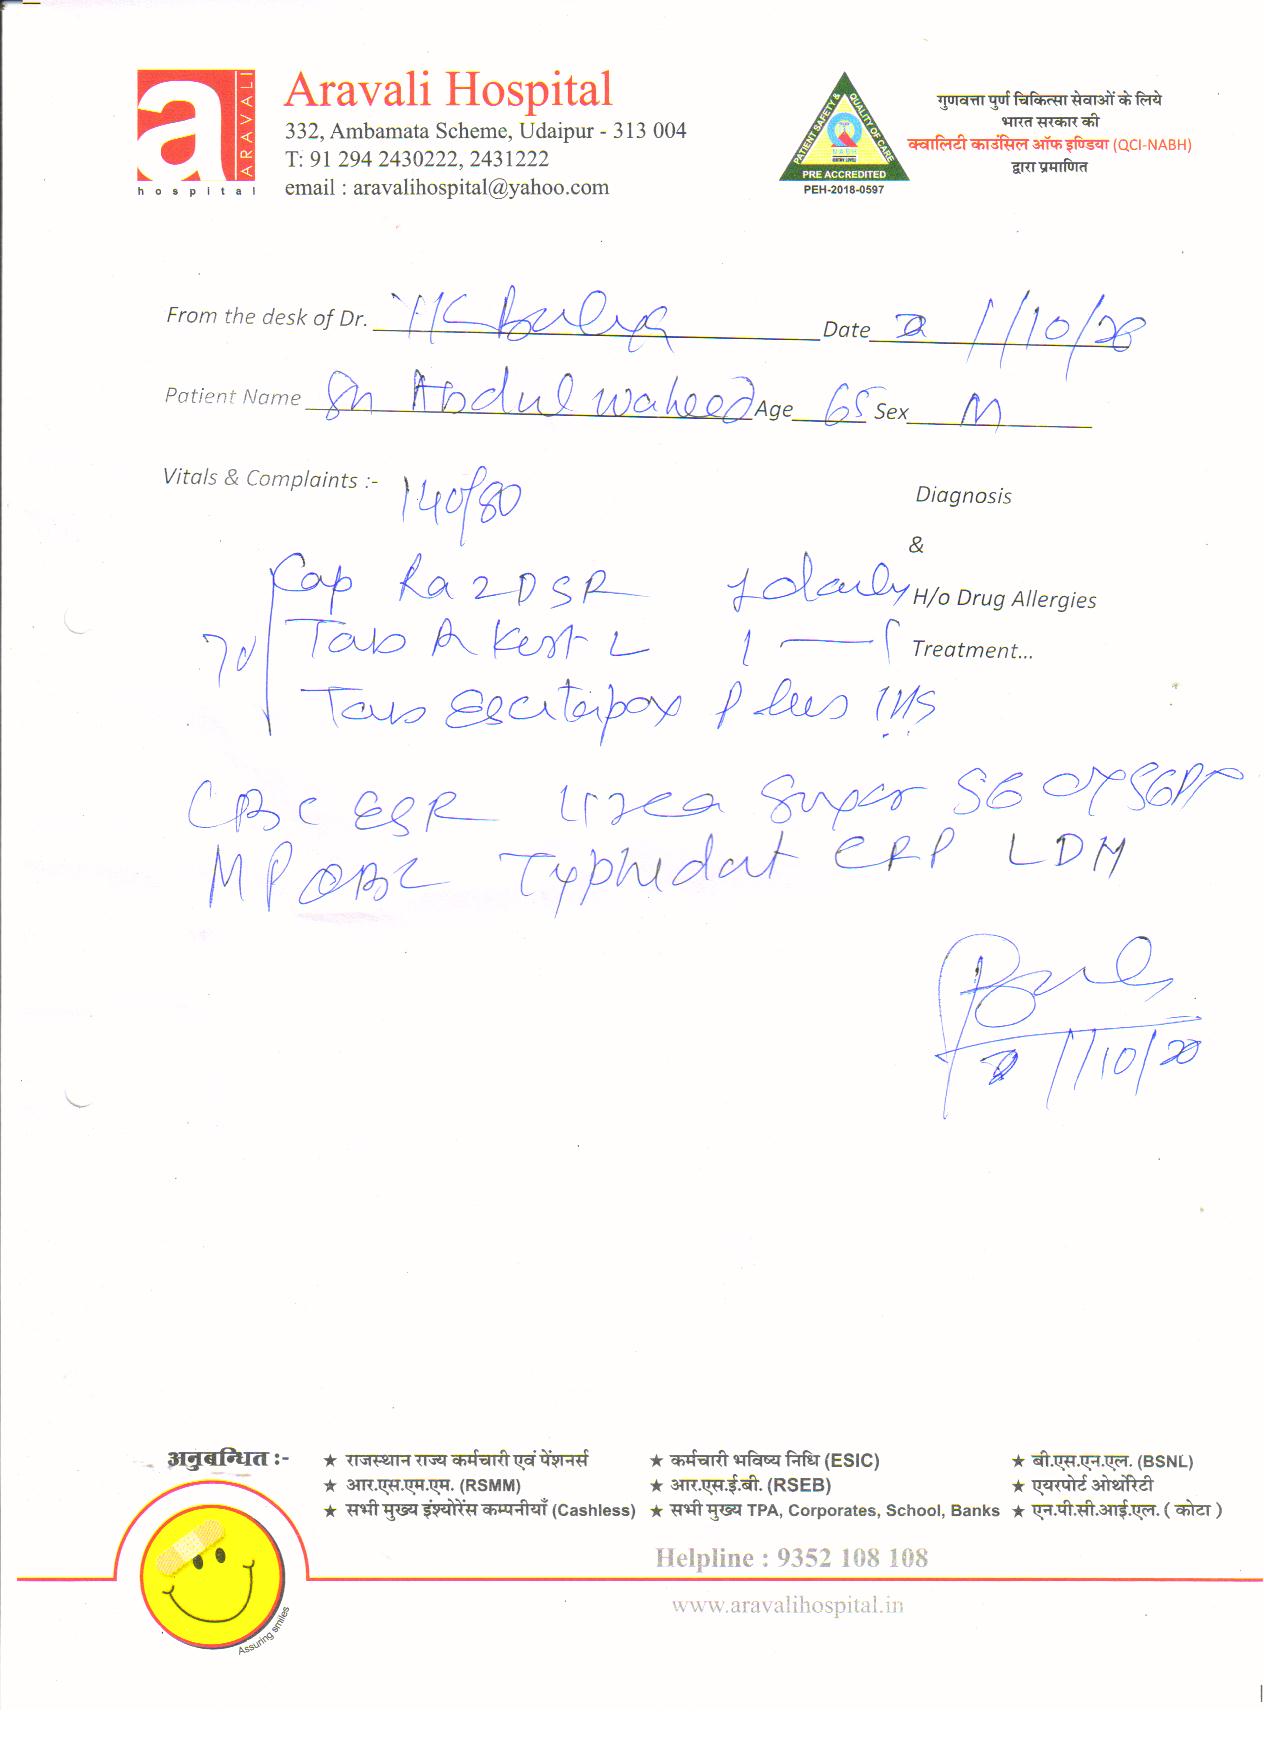 ARAVALI
hospital
Aravali Hospital
332, Ambamata Scheme, Udaipur - 313 004
T: 91 294 2430222, 2431222
email : aravalihospital@yahoo.com
PATIENT SAFETY & QUALITY OF CARE
NABH
ENTRY LEVEL
PRE ACCREDITED
PEH-2018-0597
गुणवत्ता पुर्ण चिकित्सा सेवाओं के लिये
भारत सरकार की
क्वालिटी काउंसिल ऑफ इण्डिया (QCI-NABH)
द्वारा प्रमाणित
From the desk of Dr. Date /10/20
Patient Name Sh Abdul Waheed Age 65 Sex M
Vitals & Complaints :- 140/80
Diagnosis
&
H/o Drug Allergies
Treatment...
Cap Raz DSR 1 daily
Tab A Kest L 1 — 1
Tab Plus 1HS
CBC ESR Urea Sugar SGOT SGPT
MP QBC Typhidot CRP LDH
/10/20
अनुबन्धित :-
★ राजस्थान राज्य कर्मचारी एवं पेंशनर्स ★ कर्मचारी भविष्य निधि (ESIC) ★ बी.एस.एन.एल. (BSNL)
★ आर.एस.एम.एम. (RSMM) ★ आर.एस.ई.बी. (RSEB) ★ एयरपोर्ट ओथोरिटी
★ सभी मुख्य इंश्योरेंस कम्पनीयाँ (Cashless) ★ सभी मुख्य TPA, Corporates, School, Banks ★ एन.पी.सी.आई.एल. ( कोटा )
Helpline : 9352 108 108
www.aravalihospital.in
Assuring smiles